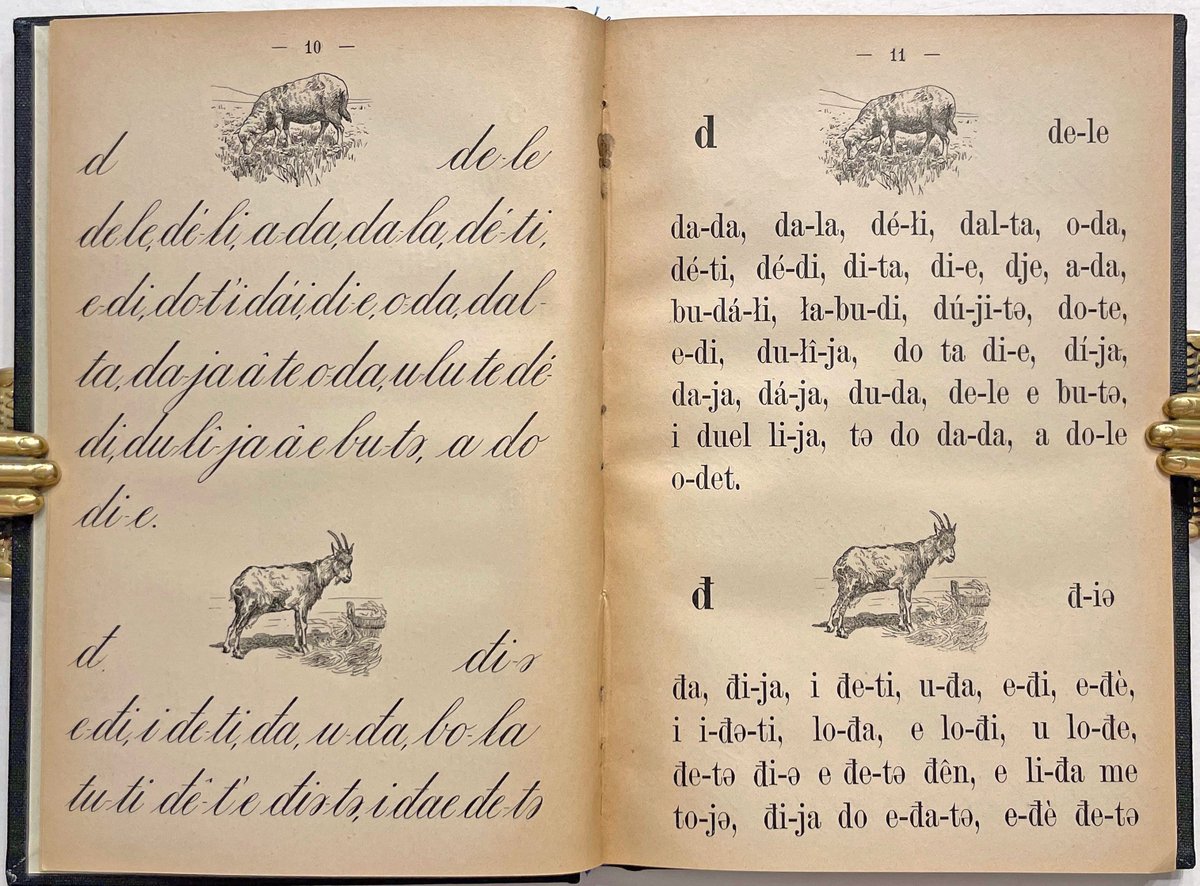 — 10 —
d de-le
de-le, dé-łi, a-da, da-la, dé-ti,
e-di, do-t'i dái, di-e, o-da, dal-
ta, da-ja â te o-da, u-lu te dé-
di, du-lî-ja â e bu-tə, a do
di-e.
đ đi-ə
e-đi, i đe-ti, đa, u-đa, bo-la
tu-ti đê-t'e điə-tə, i đa e đe-tə
— 11 —
d de-le
da-da, da-la, dé-łi, dal-ta, o-da,
dé-ti, dé-di, di-ta, di-e, dje, a-da,
bu-dá-łi, ła-bu-di, dú-ji-tə, do-te,
e-di, du-łî-ja, do ta di-e, dí-ja,
da-ja, dá-ja, du-da, de-le e bu-tə,
i duel li-ja, tə do da-da, a do-le
o-det.
đ đ-iə
đa, đi-ja, i đe-ti, u-đa, e-đi, e-đè,
i i-đə-ti, lo-đa, e lo-đi, u lo-đe,
đe-tə đi-ə e đe-tə đên, e li-đa me
to-jə, đi-ja do e-đa-tə, e-đè đe-tə